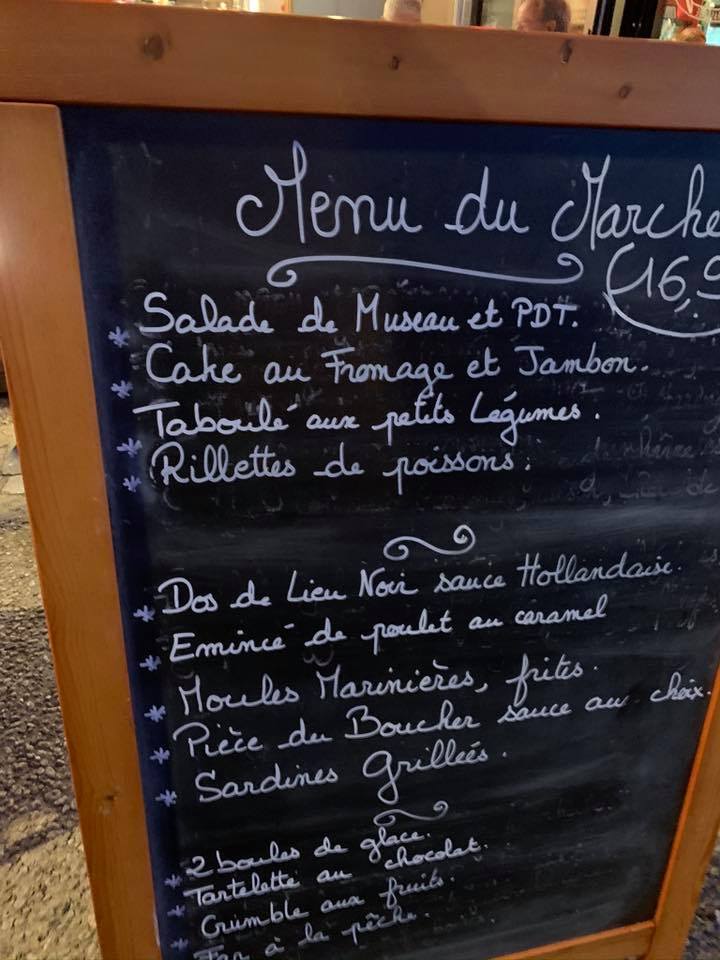 Menu du Marche
(16,9
* Salade de Museau et PDT.
* Cake au Fromage et Jambon.
* Taboulé aux petits Légumes.
* Rillettes de poissons.
* Dos de Lieu Noir sauce Hollandaise.
* Emincé de poulet au caramel
* Moules Marinières, frites.
* Pièce du Boucher sauce au choix.
* Sardines Grillées.
* 2 boules de glace.
* Tartelette au chocolat.
* Crumble aux fruits.
Far à la pêche.